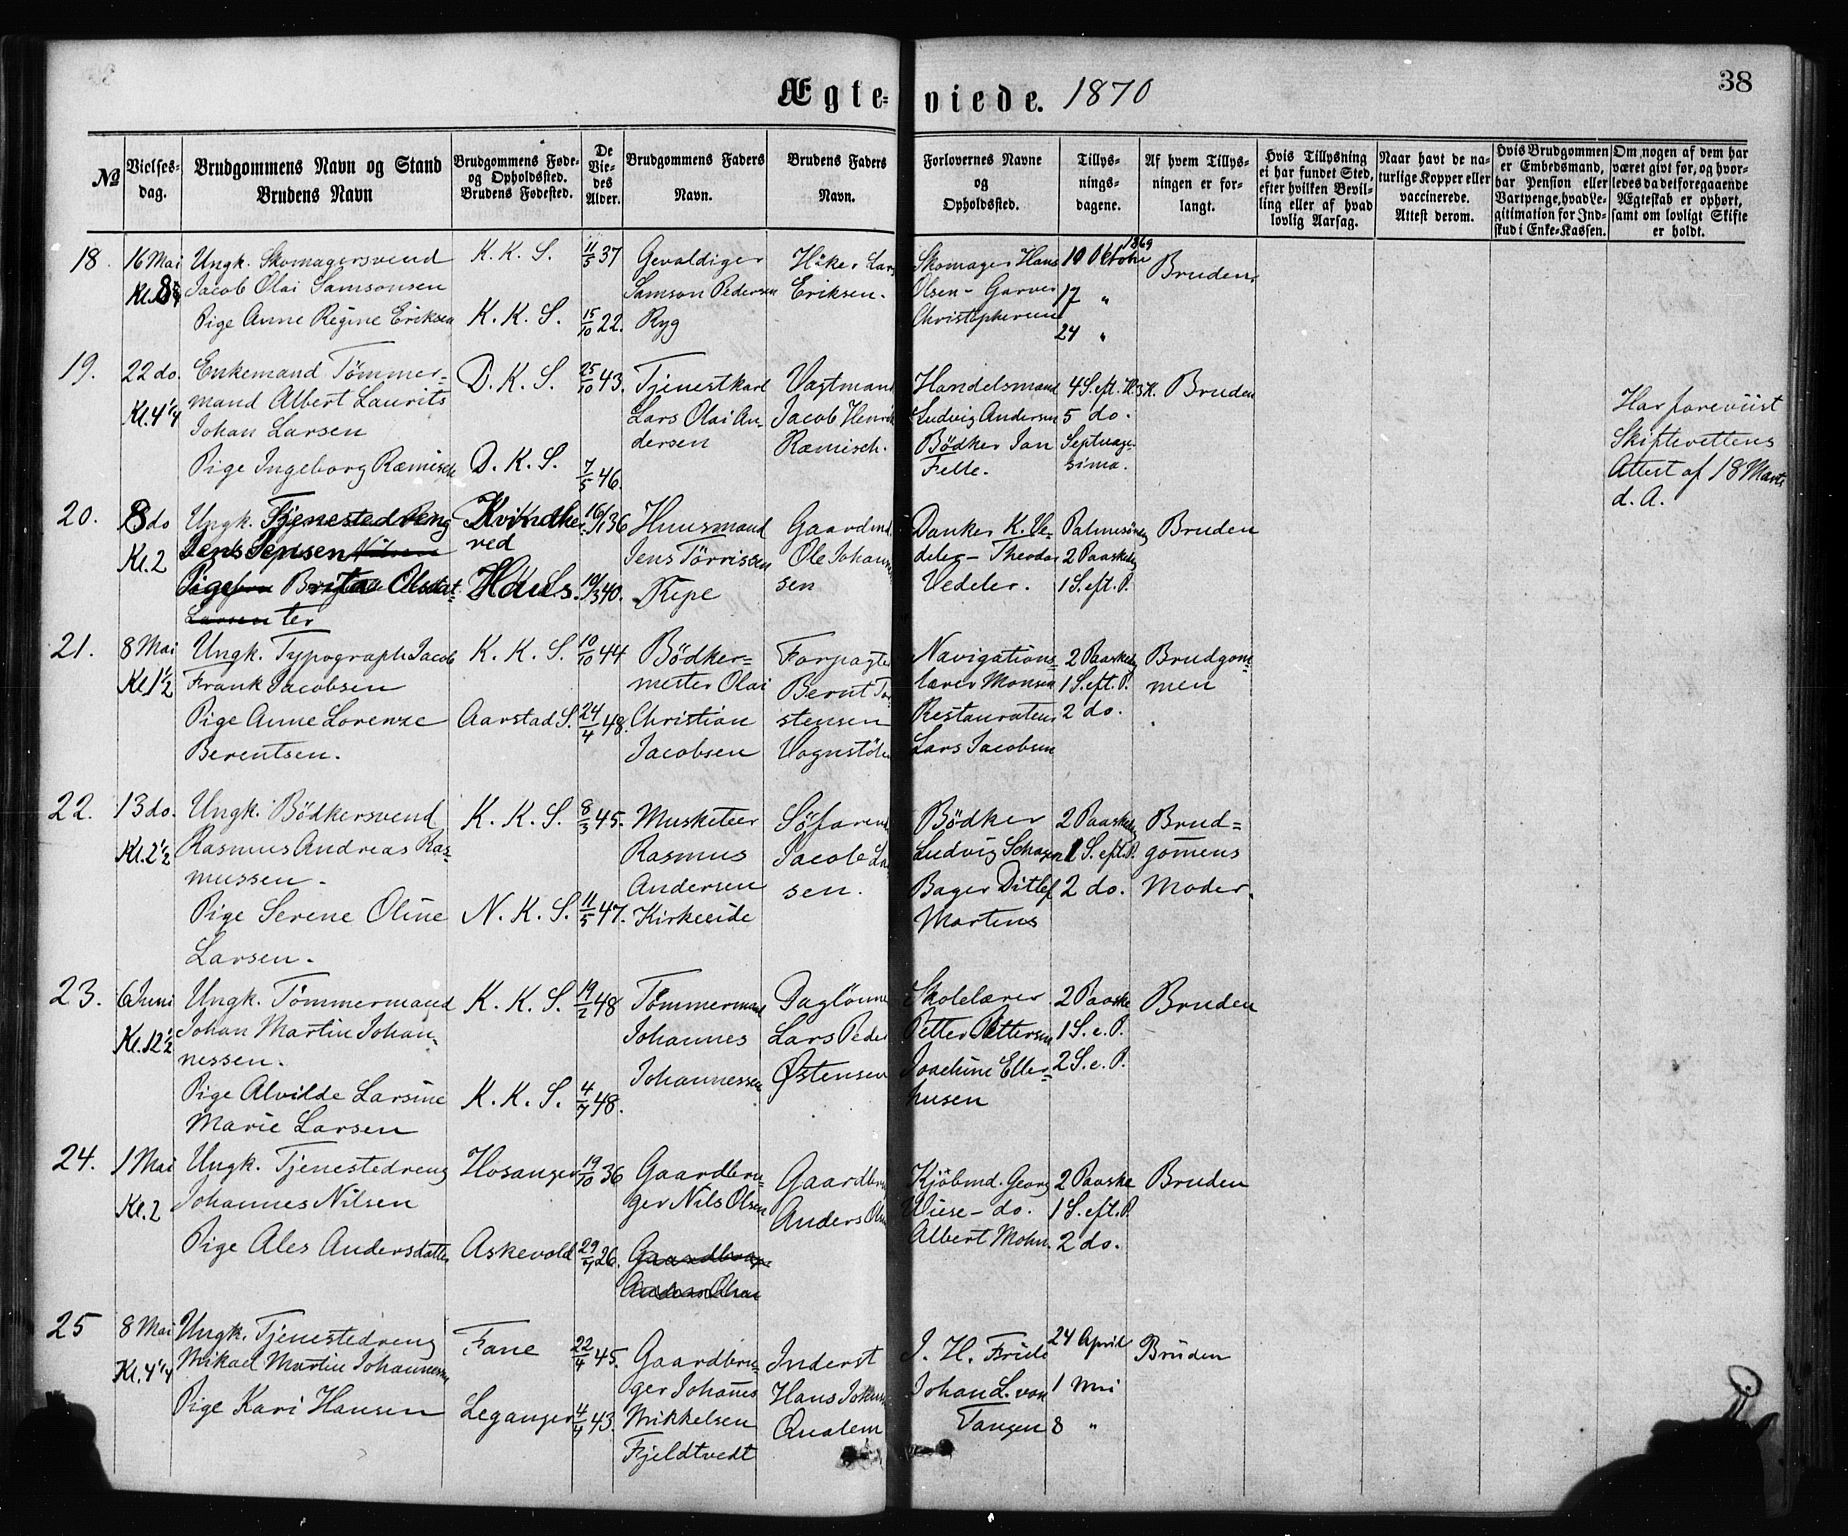 Ægte-viede. 1870
38
№
Vielses-dag.
Brudgommens Navn og Stand
Brudens Navn
Brudgommens Føde- og Opholdssted.
Brudens Fødested.
De Vie-des Alder.
Brudgommens Faders Navn.
Brudens Faders Navn.
Forlovernes Navne og Opholdssted.
Tillys-nings-dagene.
Af hvem Tillys-ningen er for-langt.
Hvis Tillysning ei har fundet Sted, efter hvilken Bevil-ling eller af hvad lovlig Aarsag.
Naar havt de na-turlige Kopper eller vaccinerede. Attest derom.
Hvis Brudgommen er Embedsmand, har Pension eller Vartpenge, hvad Le-gitimation for Ind-skud i Enke-Kassen.
Om nogen af dem har været givt før, og hvor-ledes da det foregaaende Ægteskab er ophørt, samt om lovligt Skifte er holdt.
18. 16 Mai
Ungk. Skomagersvend
Jacob Olai Samsonsen
Pige Anne Regine Eriksen
K. K. S.
K. K. S.
11/5 37
15/10 22.
Gevaldiger
Samson Pedersen
Ryg
Høker Lars
Eriksen.
Skomager Hans
Olsen - Garver
Christophersen
1869
10 Oktober
17 "
24 "
Bruden
19. 22 do.
Kl. 4 1/4
Enkemand Tømmer=
mand Albert Laurits
Johan Larsen
Pige Ingeborg Ramisch
D. K. S.
D. K. S.
25/10 43.
7/5 46.
Tjenestkarl
Lars Olai An-
dersen
Vagtmand
Jacob Henrik
Ramisch.
Handelsmand
Ludvig Andersen
Bødker Jan
Felle.
4 S. eft. H.3K.
5 do.
Septuage-
sima.
Bruden
Har foreviist
Skifterettens
Attest af 18 Marts
d. A.
20. 8 do
Kl. 2
Ungk. Tjenestedreng
Jens Jensen
Pige Brita Olsdat-
ter
Kvindhe-
red
Haus.
16/11 36
10/3 40.
Huusmand
Jens Tørrissen
Repe
Gaardmd.
Ole Johanne-
sen
Danker K. Ve-
deler - Theodor
Vedeler.
Palmesøndag
2 Paaskedag
1 S. eft. P.
Bruden
21. 8 Mai
Kl. 1 1/2
Ungk. Typograph Jacob
Frank Jacobsen
Pige Anne Lorenze
Berentsen.
K. K. S.
Aarstad S.
10/10 44
24/4 48.
Bødker=
mester Olai
Christian
Jacobsen
Forpagter
Bernt Tor-
stensen
Vognstøl
Navigations-
lærer Monsen
Restauratør
Lars Jacobsen
2 Paaskedag
1 S. eft. P.
2 do.
Brudgom-
men
22. 13 do.
Kl. 2 1/2
Ungk. Bødkersvend
Rasmus Andreas Ras-
mussen.
Pige Serene Oline
Larsen.
K. K. S.
N. K. S.
8/3 45.
11/5 47.
Musketeer
Rasmus
Andersen
Kirkeeide
Søfarende
Jacob Lar
sen.
Bødker
Ludvig
Bager Ditlef
Martens
2 Paaskedag
1 S. eft. P.
2 do.
Brud=
gomens
Moder.
23. 6 Juni
Kl. 12 1/2
Ungk. Tømmermand
Johan Martin Johan-
nessen.
Pige Alvilde Larsine
Marie Larsen
K. K. S.
K. K. S.
19/2 48
4/7 48.
Tømmermand
Johannes
Johannessen
Daglønner
Lars Peder
Østensen
Skolelærer
Petter Pettersen
Joachim Eller-
husen
2 Paaske
1 S. e. P.
2 S. e. P.
Bruden
24. 1 Mai
Kl. 2
Ungk. Tjenestedreng
Johannes Nilsen
Pige Ales Andersdatter
Hosanger
Askevold
19/10 36
26.
Gaardbru-
ger Nils Olsen
Gaardbru
Anders Olsen
Kjøbmd. Georg
Wiese - do.
Albert Mohn.
2 Paaske
1 S. eft. P.
2 do.
Bruden
25 8 Mai
Kl. 4 1/4
Ungk. Tjenestedreng
Mikael Martin Johannessen
Pige Kari Hansen
Fane
Leganger
22/4 45.
4/4 43.
Gaardbru-
ger Johannes
Mikkelsen
Fjeldtvedt
Inderst
Hans Johan
Qualem
J. H. Friele
Johan L. von
Tangen
24 April
1 Mai
8 "
Bruden